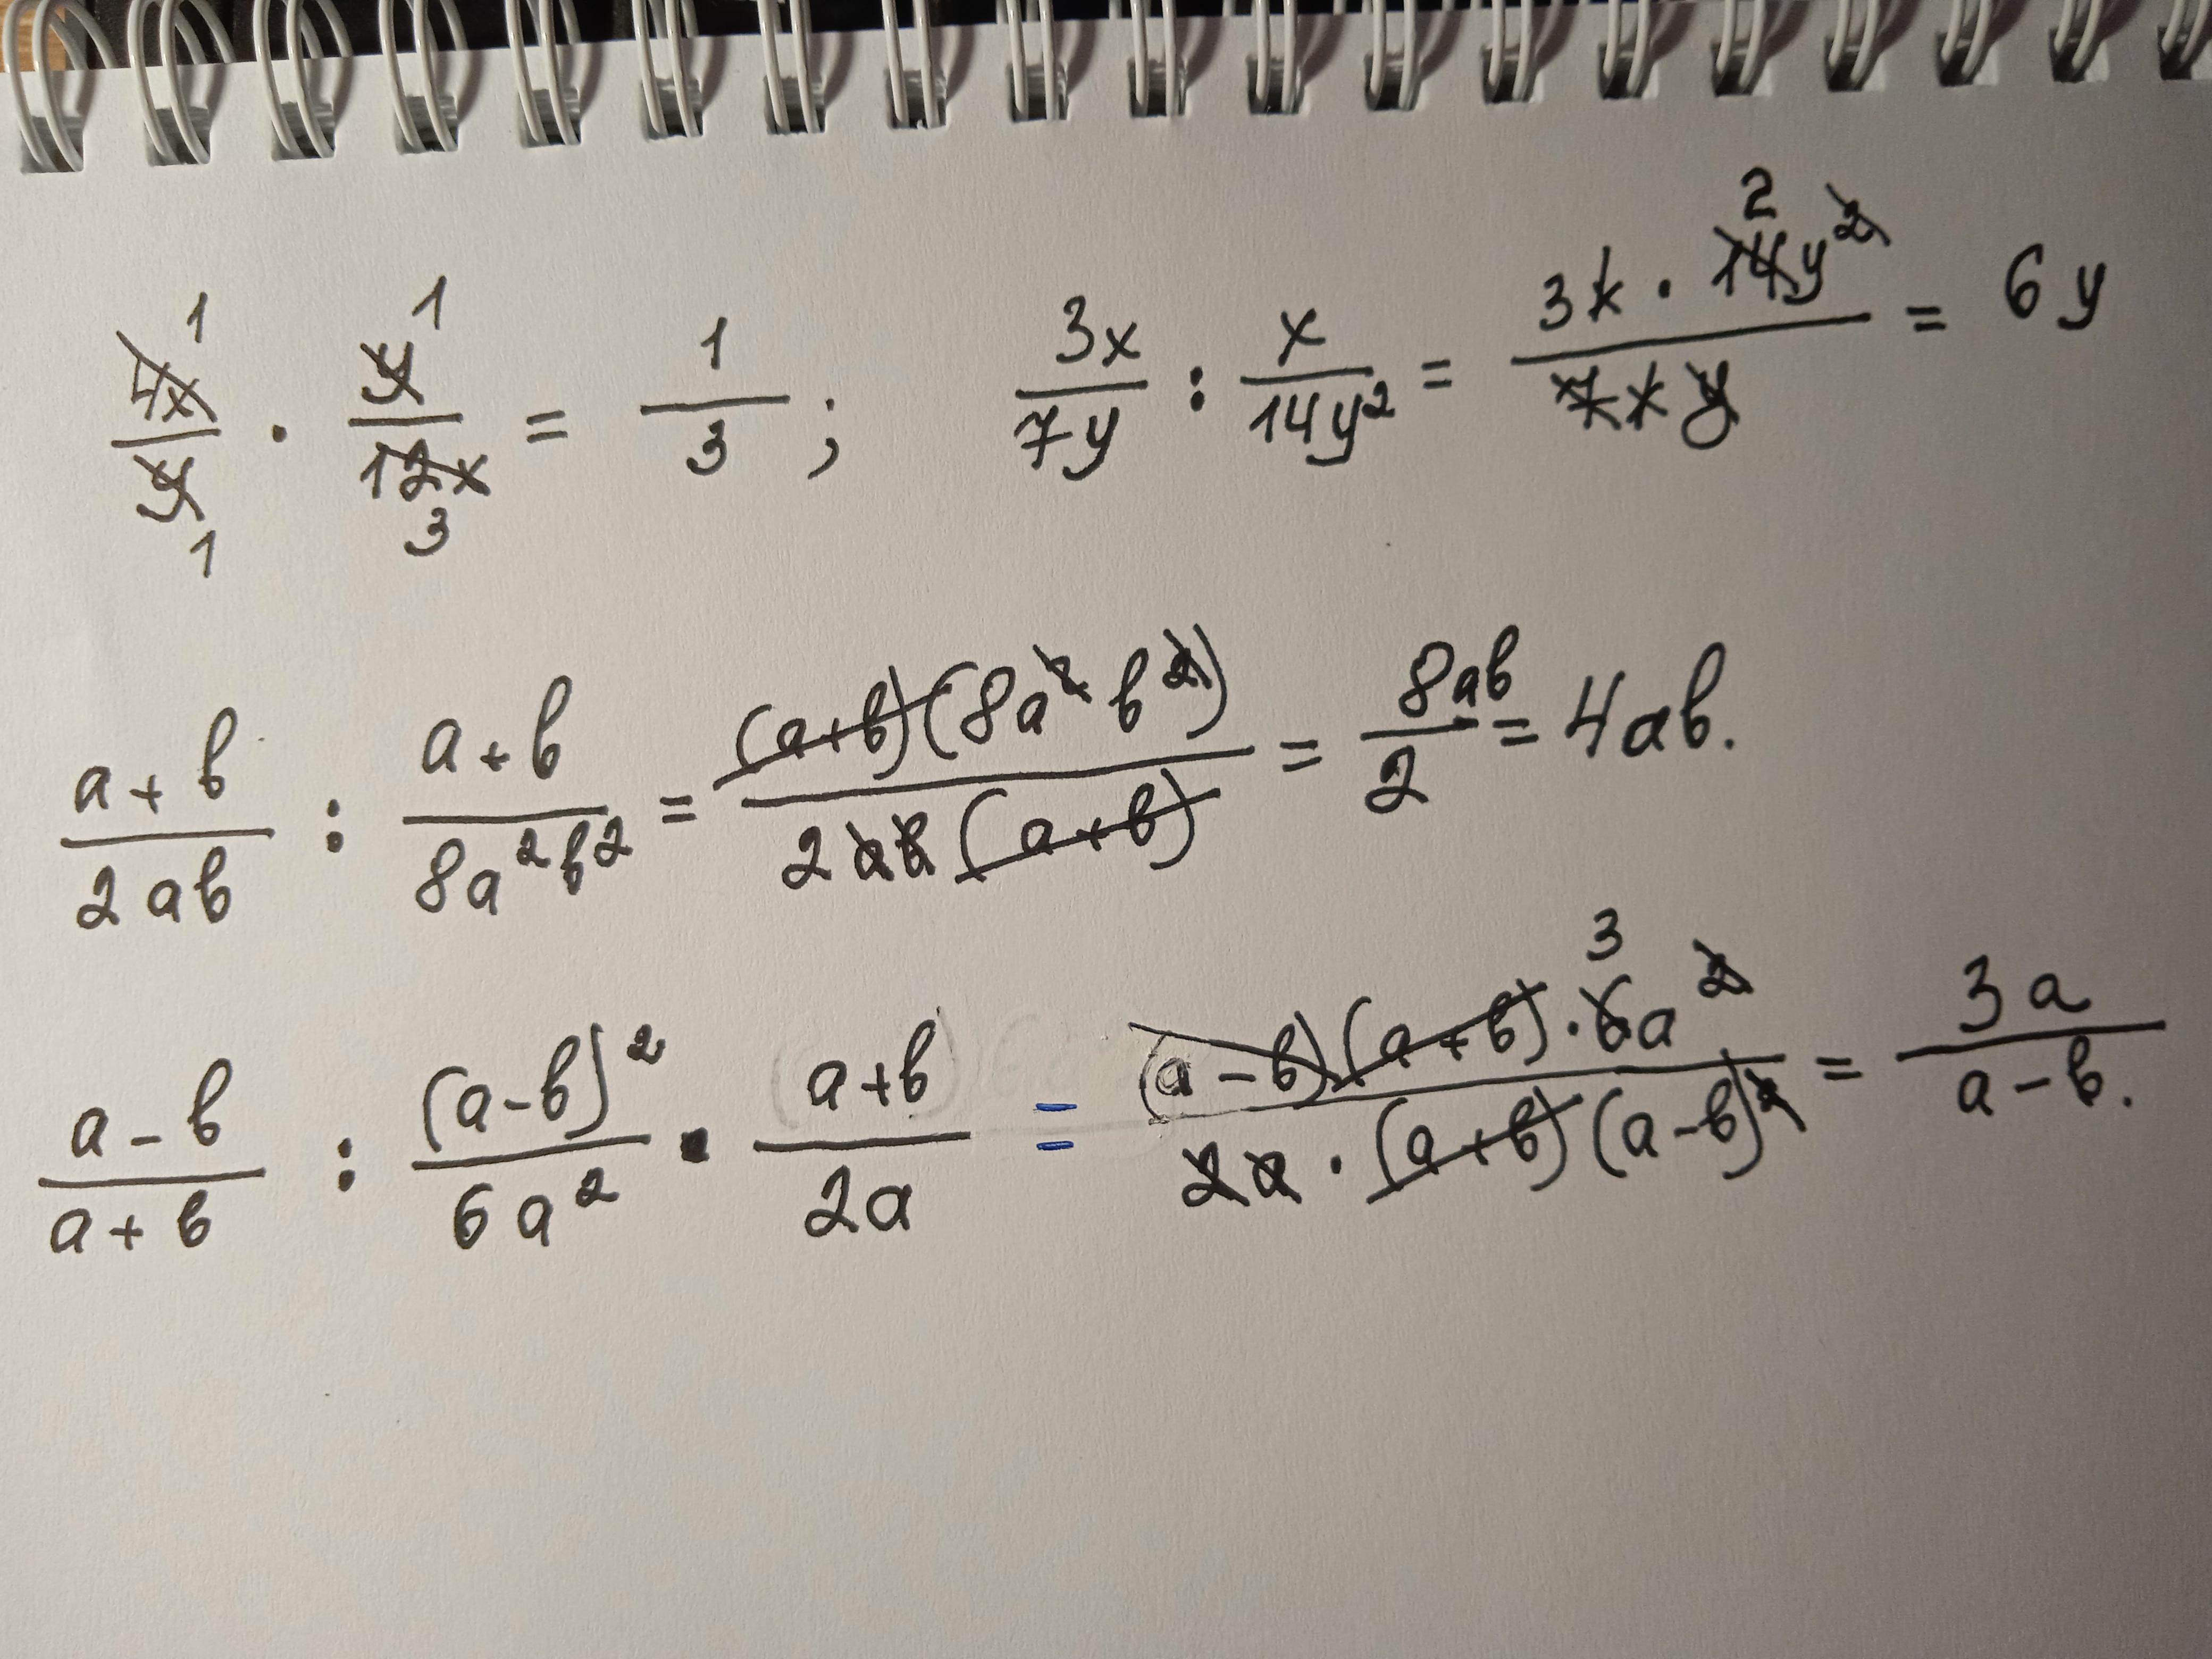 4x/y · y/12x = 1/3 ; 3x/7y : x/14y² = 3x · 14y²/7xy = 6y
a+b/2ab : a+b/8a²b² = (a+b)(8a²b²)/2ab(a+b) = 8ab/2 = 4ab.
a-b/a+b : (a-b)²/6a² · a+b/2a = (a-b)(a+b)·6a²/2a·(a+b)(a-b)² = 3a/a-b.